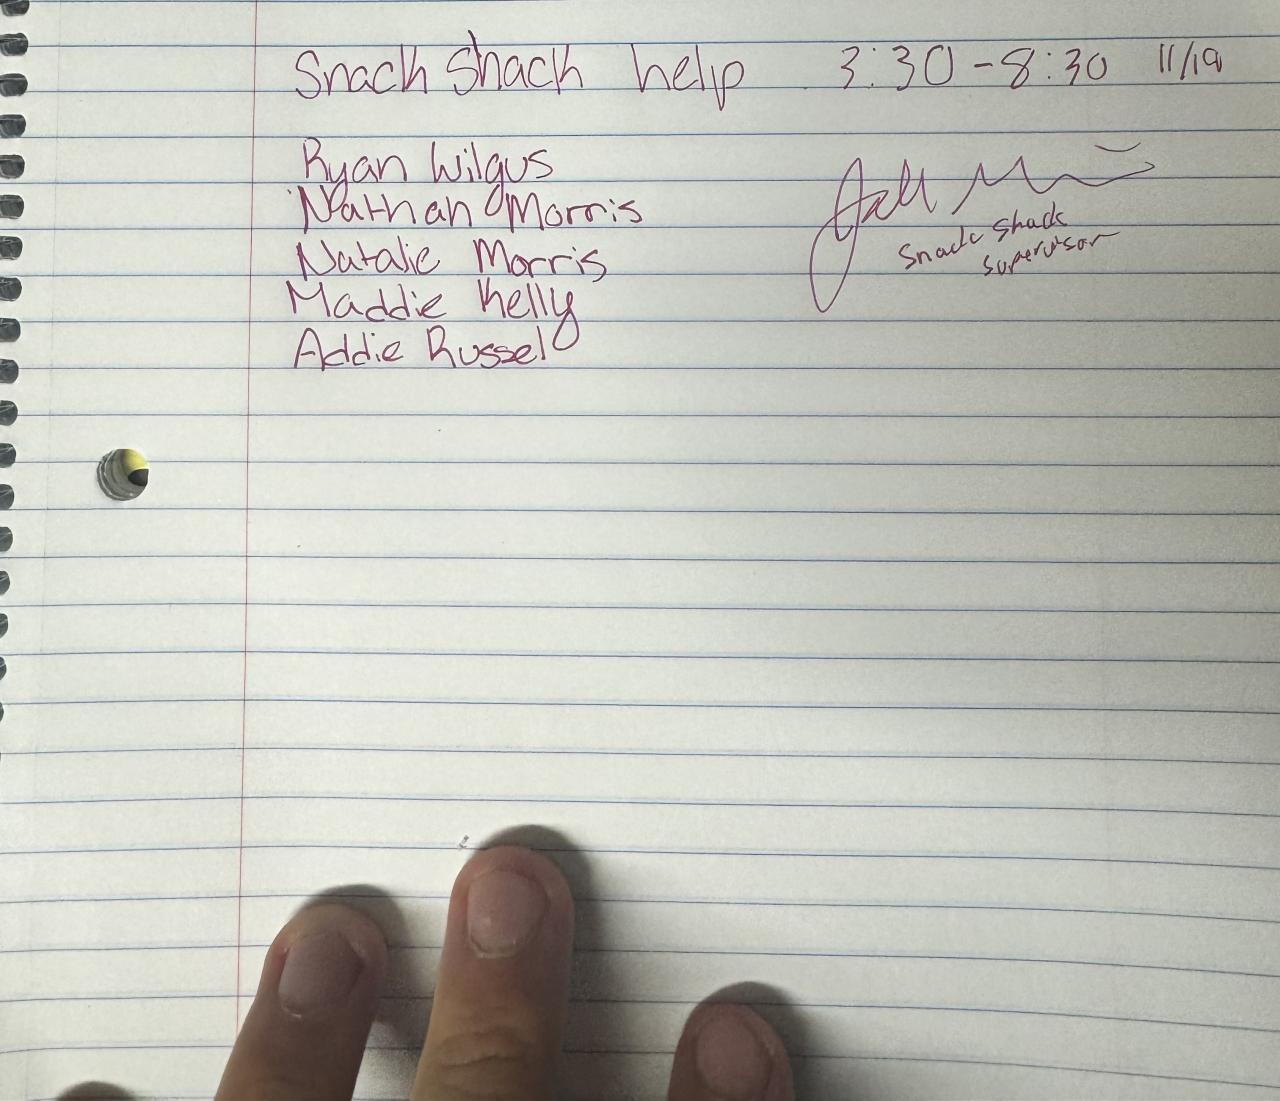 Snack Shack help 3:30-8:30 11/19
Ryan Wilgus
Nathan Morris
Natalie Morris
Maddie Kelly
Addie Russel
Snack Shack
Supervisor